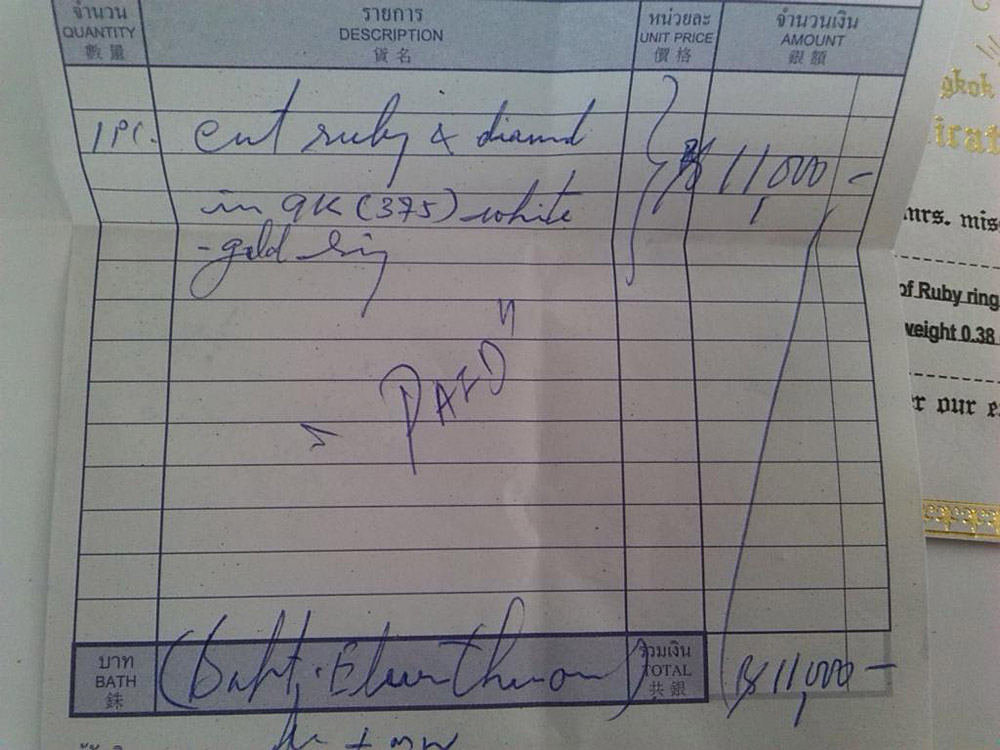 จำนวน รายการ หน่วยละ จำนวนเงิน
QUANTITY DESCRIPTION UNIT PRICE AMOUNT
數量 貨名 價格 銀額
1 PC. cut ruby & diamond ฿ 11,000 -
in 9K (375) white
-gold ring
"PAID"
บาท รวมเงิน
BATH (Baht. Eleven Thousand) TOTAL ฿ 11,000 -
銖 共銀
gkok
mrs. mis
of Ruby ring
weight 0.38
r our e